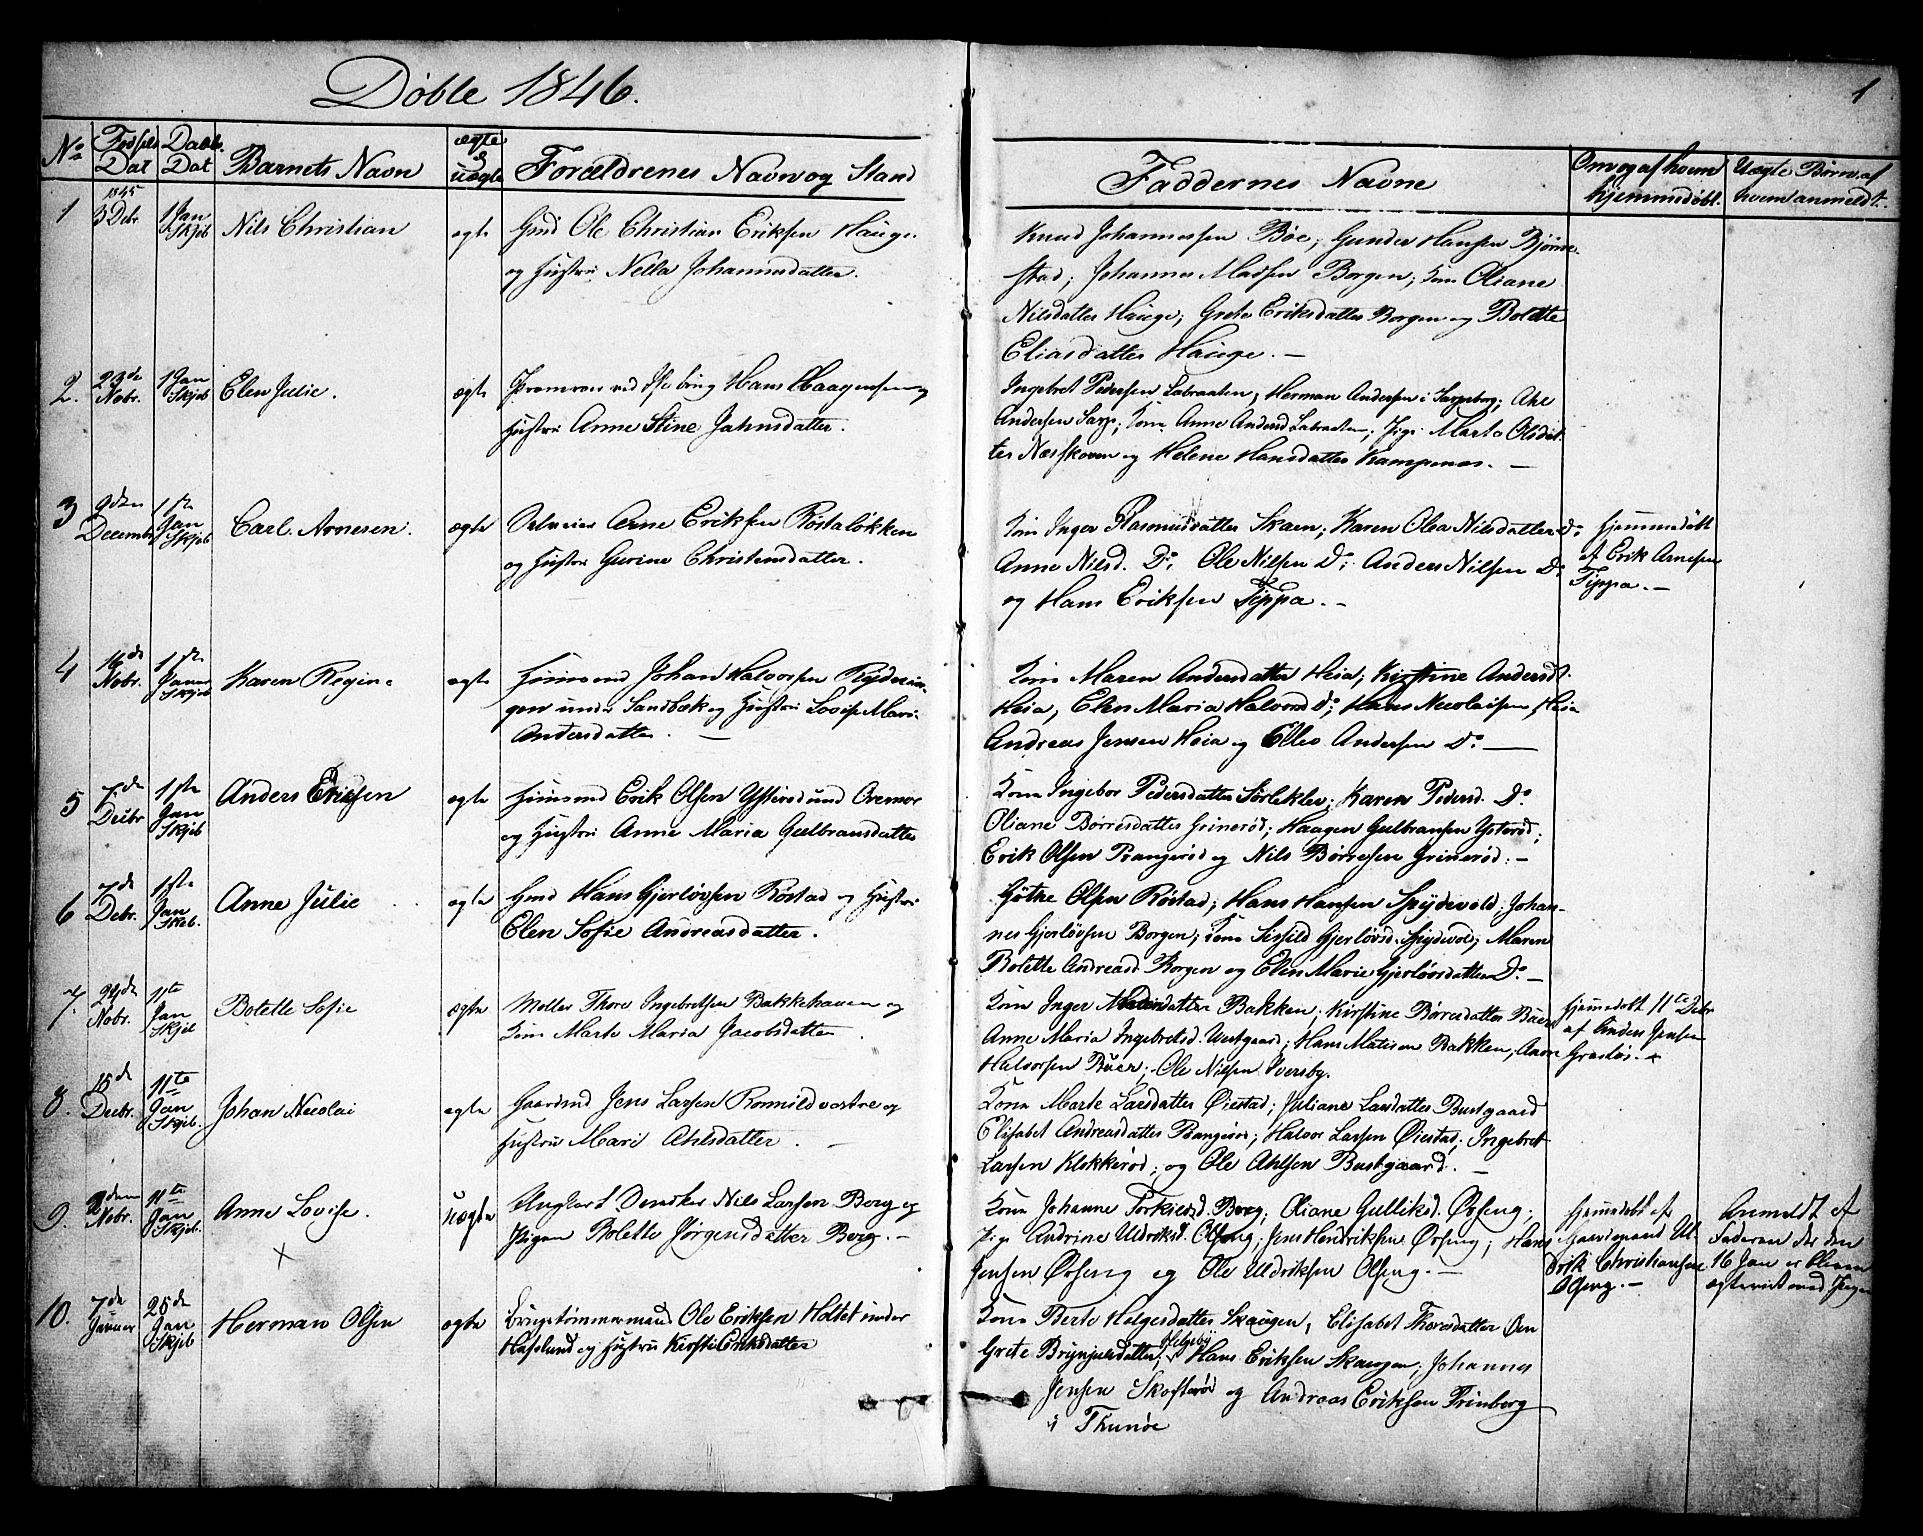 Døbte 1846.
1
No
Fødsels Dat
Daabs Dat
Barnets Navn
ægte & uægte
Forældrenes Navn og Stand
Faddernes Navne
Om og af hvem hjemmedøbt.
Uægte Børn af hvem anmeldt.
1
1845
3 Debr.
1 Jan
Skjeb
Nils Christian
ægte
Gmd Ole Christian Eriksen Hauge
og Hustru Nella Johannesdatter.
Knud Johannessen Bøe; Gunder Hansen Bjørne-
stad; Johannes Madsen Borgen; Kone Oliane
Nilsdatter Hauge; Grete Eriksdatter Borgen og Bolette
Eliasdatter Hauge. —
2.
23de
Nobr.
1 Jan
Skjeb
Elen Julie.
ægte
Hans Haagensen og
Hustru Anne Stine Jahnsdatter.
Ingebret Pedersen Labraaten; Herman Andersen i Sarpsborg; Ahe
Andersen Sarp; Kone Anne Andersd Labraaten; Pige Marte Olsdat-
ter Næsskoven og Helene Hansdatter Kampenes. —
3
9den
Decembr
1ste
Jan
Skjeb
Carl. Arnesen.
ægte
Arne Eriksen Røstaløkken
og Hustru Gurine Christensdatter.
Kone Inger Rasmusdatter Skaen; Karen Olea Nilsdatter Do
Anne Nilsd. Do; Ole Nilsen Do; Anders Nilsen Do;
og Hans Eriksen Tippa. —
Hjemmedøbt
af Erik Arnesen
Tippa. —
4
16de
Nobr.
1ste
Januar
Skjeb
Karen Regine
ægte
Huusmd Johan Halvorsen Rydnin-
gen under Sandbæk og Hustru Lovise Marie
Andersdatter. —
Kone Maren Andersdatter Heia; Kirstine Andersdt.
Heia; Elen Maria Halvorsd Do; Hans Nicolaisen Heia
Andreas Jensen Heia og Elles Andersen Do. —
5
7de
Debr
1ste
Jan
Skjeb
Anders Eriksen
ægte
Huusmd Erik Olsen Ysterød und Oremor
og Hustru Anne Maria Gulbransdatter
Kone Ingebor Pedersdatter Sørlekler; Karen Pedersd. Do.
Oliane Børresdatter Grinerød; Haagen Gulbransen Ysterød;
Erik Olsen Bangerød og Nils Børresen Grinerød. —
6
7de
Debr.
1ste
Jan
Skeb.
Anne Julie
ægte
Gmd Hans Gjerløvsen Røstad og Hustru
Elen Sofie Andreasdatter.
Gøthe Olsen Røstad; Hans Hansen Spydevold; Johan-
nes Gjerløvsen Borgen; Kone Sissild Gjerløvsd. Spydevold; Maren
Bolette Andreasd. Borgen og Elen Marie Gjerløvsdatter Do. —
7.
24de
Nobr.
11te
Jan
Skjeb
Bolette Sofie
ægte
Møller Thore Ingebretsen Bakkehaven og
Kone Marte Maria Jacobsdatter
Kone Inger Madsdatter Bakken; Kirstine Børresdatter Buer
Anne Maria Ingebretsd. Westgaard; Hans Matisen Bakken; Aron
Halvorsen Buer; Ole Nilsen Iversby.
Hjemmedøbt 11te Debr
af Anders Jensen
Graslos. —
8.
15de
Debr.
11te
Jan
Skjeb.
Johan Nicolai
ægte
Gaardmd Jens Larsen Romild vestre og
Hustru Mari Ahlsdatter. —
Kone Marte Larsdatter Øiestad; Juliane Larsdatter Bustgaard
Elisabet Andreasdatter Bangerød; Halvor Larsen Øiestad; Ingebret
Larsen Klokkerød; og Ole Ahlsen Bustgaard. —
9.
Nobr.
11te
Jan
Skjeb.
Anne Lovise.
uægte
Ungkarl Nils Larsen Borg og
Pigen Bolette Jørgensdatter Borg. —
Kone Johanne Torkisd. Borg; Oliane Gulliksd. Opseng;
Pige Andrine Uldriksd. Olseng; Jens Hendriksen Opseng; Hans
Jensen Opseng og Ole Uldriksen Olseng. —
Hjemmedøbt af
Gaardmand Ul-
drik Christiansen
Olseng. —
Anmeldt af
Faderen der den
16 Jan er bleven
ægteviet med Pigen
10.
7de
Januar
25de
Jan
Skjeb
Herman Olsen
ægte
Brugstømmermand Ole Eriksen Holtet under
Hafslund og Hustru Kirsti Eriksdatter
Kone Berte Helgesdatter Skaugen; Elisabet Thoresdatter Øen
Grete Brynjulsdatter Helgeby; Hans Eriksen Skaugen; Johannes
Jensen Skofterød og Andreas Eriksen Trinborg
i Thunøe